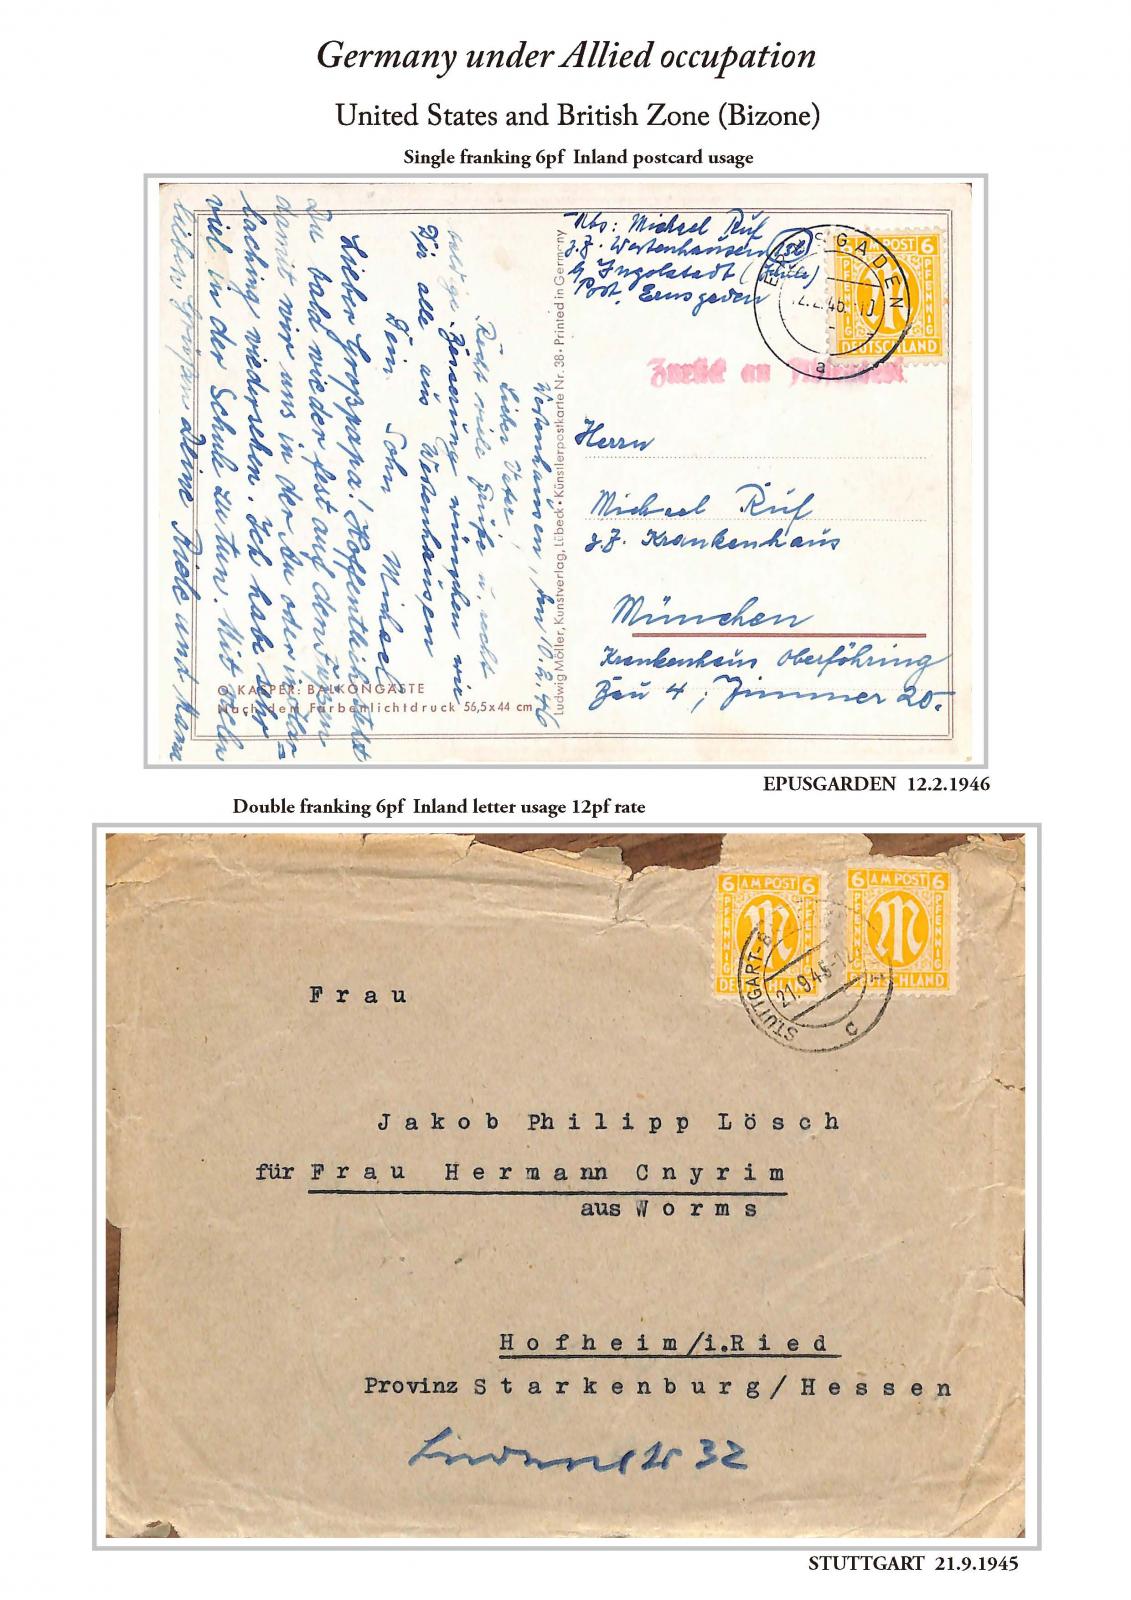 Germany under Allied occupation
United States and British Zone (Bizone)
Single franking 6pf Inland postcard usage
Abs: Michael Ruf
z. Z. Westenhausen
b/ Ingolstadt
Post. Ernsgaden
ERNSGADEN
12.2.46.-10
a
6 AM POST 6
PFENNIG PFENNIG
DEUTSCHLAND
Zurück an Absender.
Herrn
Michael Ruf
z. Z. Krankenhaus
München
Krankenhaus Oberföhring
Bau 4, Zimmer 20.
Ludwig Möller, Kunstverlag, Lübeck • Künstlerpostkarte Nr. 38 • Printed in Germany
Westenhausen, den 10.2.46
Lieber Vater!
Recht viele Grüße u. recht
baldige Besserung wünschen wir
Dir alle aus Westenhausen
Dein Sohn Michael
Lieber Großpapa! Hoffentlich stehst
Du bald wieder fest auf den Füssen
damit wir uns in der Au oder in
wiedersehen. Ich habe sehr
viel in der Schule zu tun. Mit vielen
lieben Grüßen Deine und Mama
O. KASPER: BALKONGÄSTE
Nach dem Farbenlichtdruck 56,5x44 cm
EPUSGARDEN 12.2.1946
Double franking 6pf Inland letter usage 12pf rate
6 AM POST 6
PFENNIG PFENNIG
DEUTSCHLAND
6 AM POST 6
PFENNIG PFENNIG
DEUTSCHLAND
STUTTGART-B
21.9.45-12
c
Frau
Jakob Philipp Lösch
für Frau Hermann Cnyrim
aus Worms
Hofheim/i.Ried
Provinz Starkenburg/Hessen
32
STUTTGART 21.9.1945